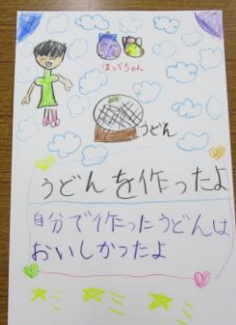 はってちゃん
うどん
うどんを作ったよ
自分で作ったうどんは
おいしかったよ